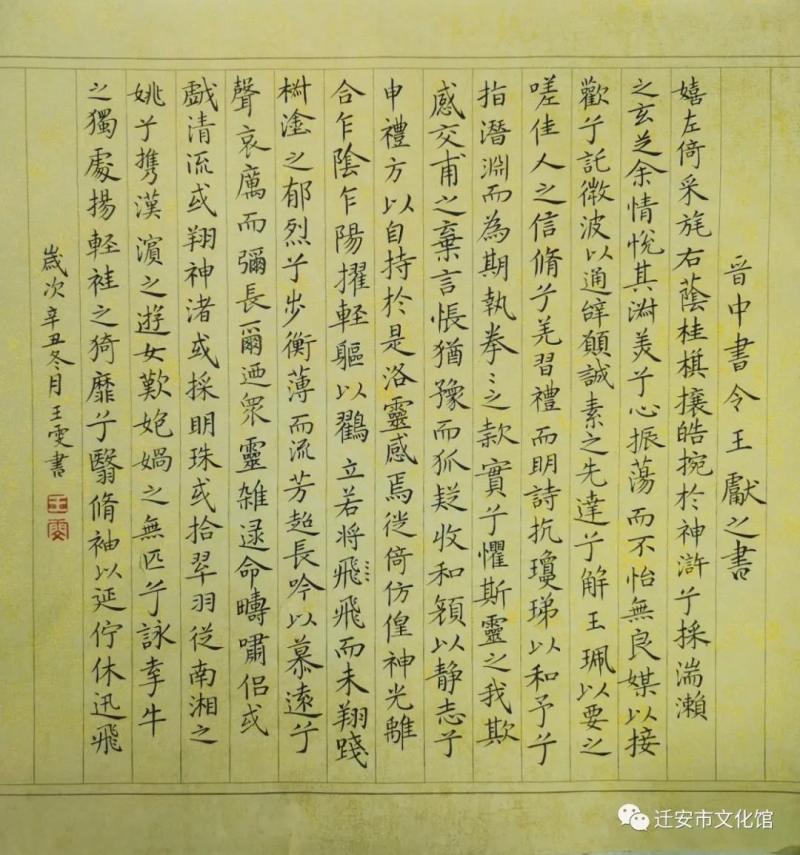 晉中書令王獻之書
嬉左倚采旄右蔭桂棋攘皓捥於神滸兮採湍瀨
之玄芝余情悅其淑美兮心振蕩而不怡無良媒以接
歡兮託微波以通辝願誠素之先達兮解玉珮以要之
嗟佳人之信脩兮羌習禮而明詩抗瓊珶以和予兮
指潛淵而為期執拳〻之款實兮懼斯靈之我欺
感交甫之棄言悵猶豫而狐疑收和顏以靜志兮
申禮方以自持於是洛靈感焉徙倚仿偟神光離
合乍陰乍陽擢輕軀以鶴立若將飛飛而未翔踐
椒塗之郁烈兮步衡薄而流芳超長吟以慕遠兮
聲哀厲而彌長爾迺眾靈雜逯命疇嘯侶或
戲清流或翔神渚或採明珠或拾翠羽從南湘之
姚兮攜漢濱之遊女歎媲媧之無匹兮詠牽牛
之獨處揚輕袿之猗靡兮翳脩袖以延佇休迅飛
歲次辛丑冬月王雯書
王雯
迁安市文化馆